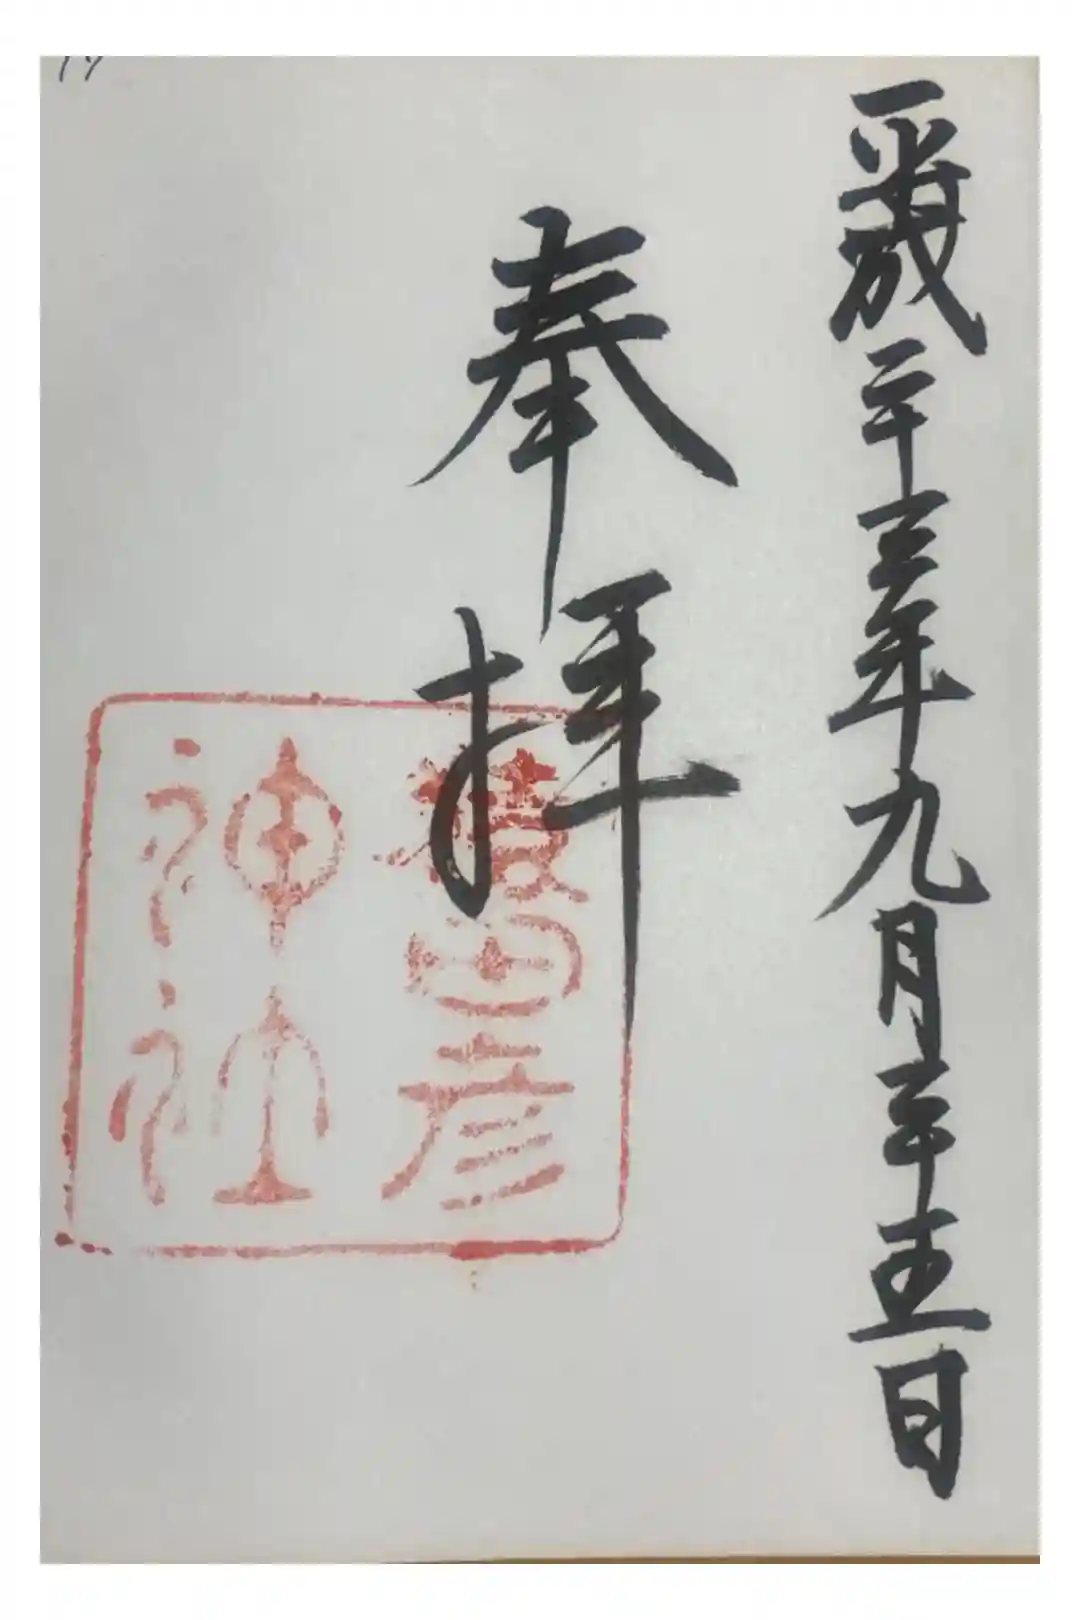 平成二十三年九月二十五日
奉拝
猿田彦
神社